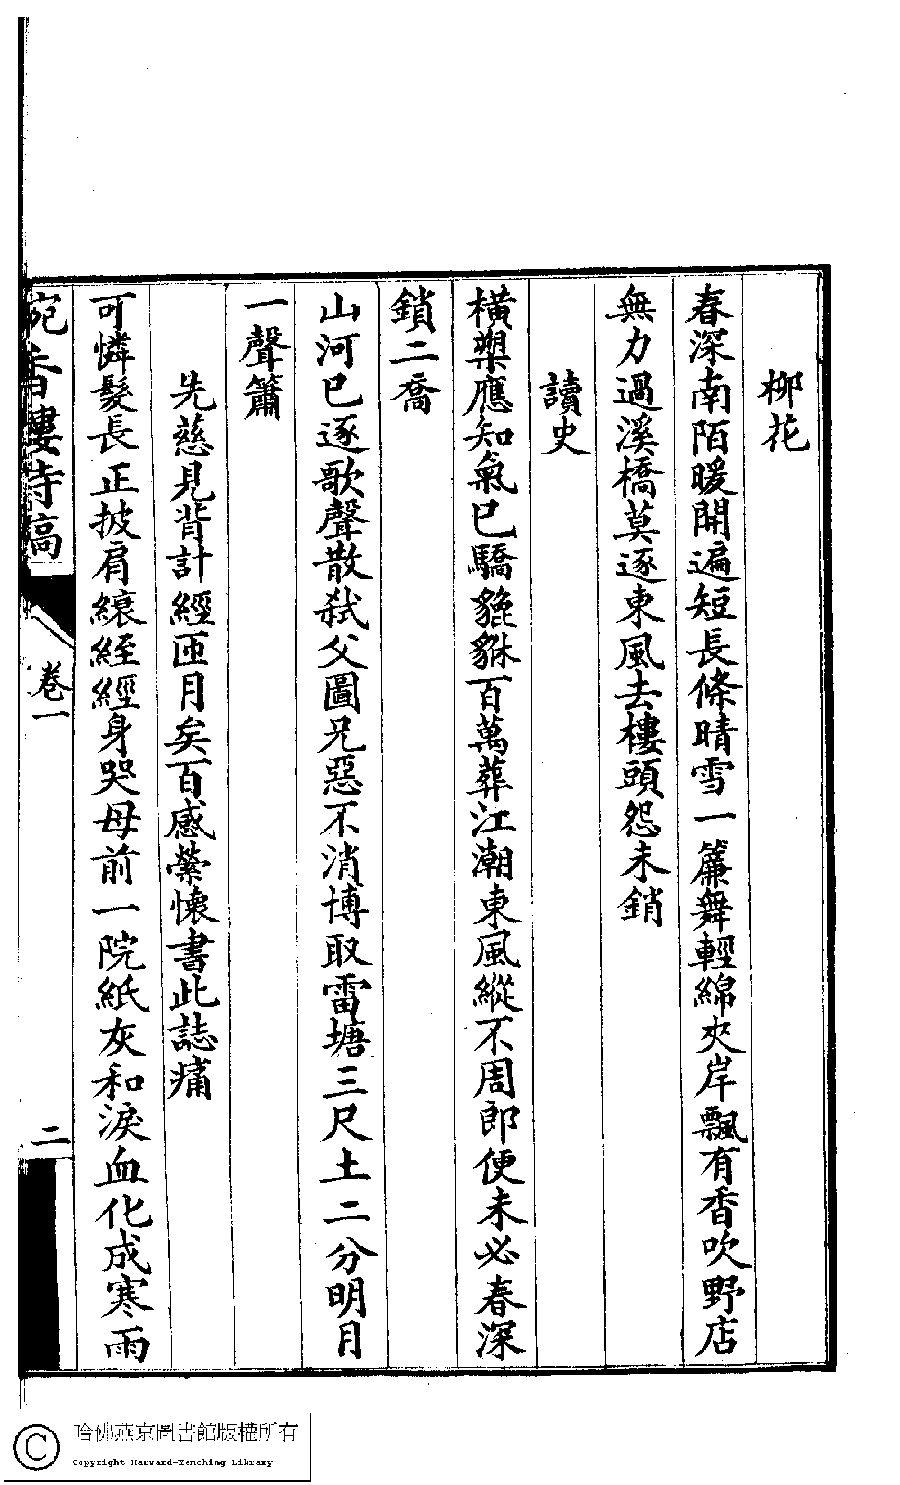 柳花
春深南陌暖開遍短長條晴雪一簾舞輕綿夾岸飄有香吹野店
無力過溪橋莫逐東風去樓頭怨未銷
讀史
橫槊應知氣已驕貔貅百萬葬江潮東風縱不周郎便未必春深
鎖二喬
山河已逐歌聲散弒父圖兄惡不消博取雷塘三尺土二分明月
一聲簫
先慈見背計經匝月矣百感縈懷書此誌痛
可憐髮長正披肩縗絰經身哭母前一院紙灰和淚血化成寒雨
宛香樓詩稿
卷一
二
哈佛燕京圖書館版權所有
Copyright Harvard-Yenching Library